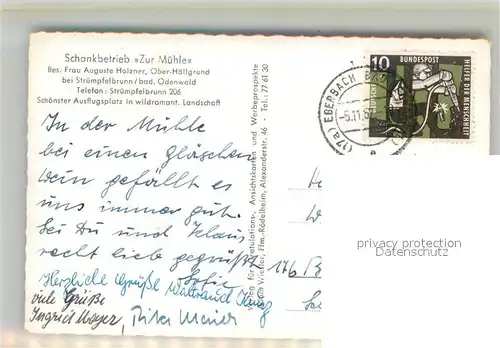 Schankbetrieb »Zur Mühle«
Bes. Frau Auguste Holzner, Ober-Höllgrund
bei Strümpfelbrunn/bad. Odenwald
Telefon: Strümpfelbrunn 206
Schönster Ausflugsplatz in wildromant. Landschaft
In der Mühle
bei einem Gläschen
Wein gefällt es
uns immer gut.
Sei Du und Klaus
recht lieb gegrüßt
Herzliche Grüße Waltraud
viele Grüße
Ingrid Mayer, Rita Maier
für Gratulations-, Ansichtskarten und Werbeprospekte
Wiesler, Ffm.-Rödelheim, Alexanderstr. 46 Tel.: 77 61 30
(17a) EBERBACH
10
BUNDESPOST
HELFER DER MENSCHHEIT
176
privacy protection
www.oldthing.de